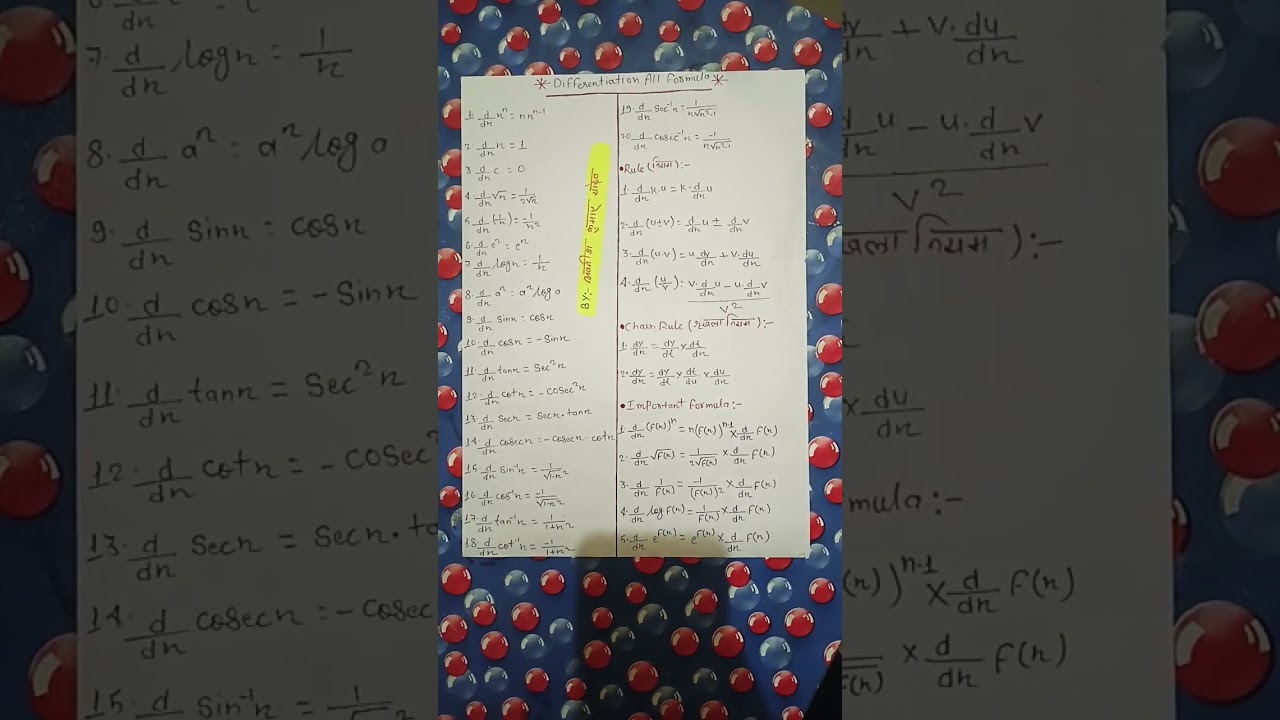 * Differentiation All Formula *
1. d/dn n^n = nn^(n-1)
2. d/dn n = 1
3. d/dn c = 0
4. d/dn √n = 1/2√n
5. d/dn (1/n) = -1/n²
6. d/dn e^n = e^n
7. d/dn logn = 1/n
8. d/dn a^n = a^n log a
9. d/dn sinn = cosn
10. d/dn cosn = -Sinn
11. d/dn tann = Sec²n
12. d/dn cotn = -cosec²n
13. d/dn Secn = Secn.tann
14. d/dn cosecn = -cosecn.cotn
15. d/dn sin⁻¹n = 1/√1-n²
16. d/dn cos⁻¹n = -1/√1-n²
17. d/dn tan⁻¹n = 1/1+n²
18. d/dn cot⁻¹n = -1/1+n²
BY:- कुमार
19. d/dn Sec⁻¹n = 1/n√n²-1
20. d/dn cosec⁻¹n = -1/n√n²-1
• Rule (नियम) :-
1. d/dn k.u = k.d/dn u
2. d/dn (u±v) = d/dn u ± d/dn v
3. d/dn (u.v) = u dv/dn + v.du/dn
4. d/dn (u/v) = v.d/dn u - u.d/dn v / v²
• Chain Rule (श्रृंखला नियम) :-
1. dy/dn = dy/dt × dt/dn
2. dy/dn = dy/dt × dt/du × du/dn
• Important formula :-
1. d/dn (f(n))^n = n(f(n))^(n-1) × d/dn f(n)
2. d/dn √f(n) = 1/2√f(n) × d/dn f(n)
3. d/dn 1/f(n) = -1/(f(n))² × d/dn f(n)
4. d/dn log f(n) = 1/f(n) × d/dn f(n)
5. d/dn e^f(n) = e^f(n) × d/dn f(n)